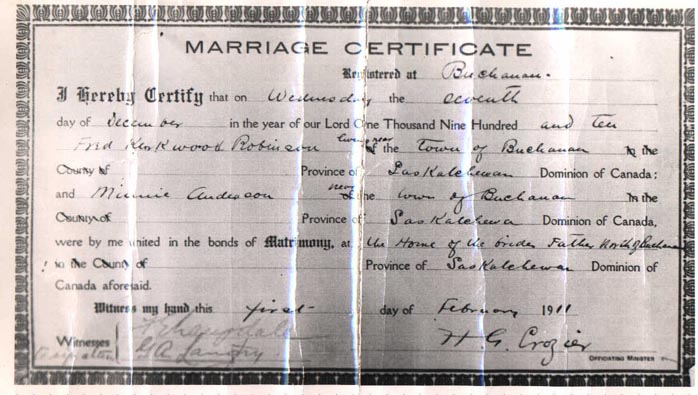 MARRIAGE CERTIFICATE
Registered at Buchanan.
I Hereby Certify that on Wednesday the seventh
day of December in the year of our Lord One Thousand Nine Hundred and ten
Fred Kirkwood Robinson of the town of Buchanan in the
County of Province of Saskatchewan Dominion of Canada:
and Minnie Anderson near of the town of Buchanan in the
County of Province of Saskatchewan Dominion of Canada,
were by me united in the bonds of Matrimony, at the Home of the brides Father North of Buchanan
in the County of Province of Saskatchewan Dominion of
Canada aforesaid.
Witness my hand this first day of February 1911
Witnesses
G.A. Landry.
H. G. Crozier
OFFICIATING MINISTER